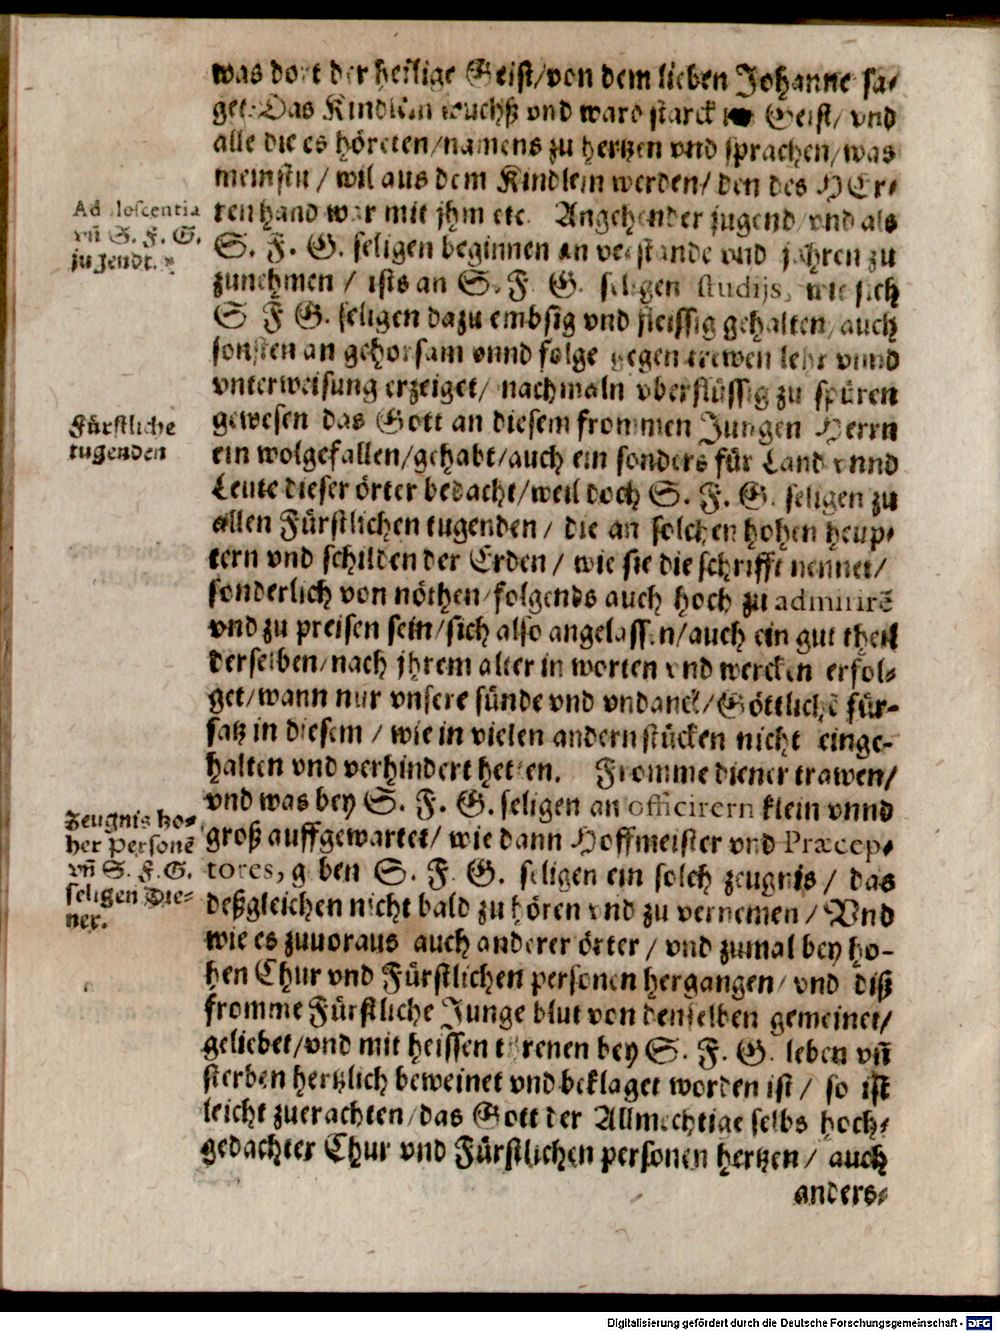 was dort der heilige Geist/von dem lieben Johanne sa-
get: Das Kindlein wuchß vnd ward starck im Geist/ vnd
alle die es höreten/namens zu hertzen vnd sprachen/was
meinstu / wil aus dem Kindlein werden/ den des HEr-
ren hand war mit jhm etc. Angehender jugend/vnd als
Adolescentia
vñ S. F. G.
jugendt.
S. F. G. seligen beginnen an verstande vnd jahren zu
zunehmen / ists an S. F. G. seligen studijs, wie sich
S F G. seligen dazu embsig vnd fleissig gehalten/auch
sonsten an gehorsam vnnd folge gegen trewen lehr vnnd
vnterweisung erzeiget/ nachmaln vberflüssig zu spüren
gewesen das Gott an diesem frommen Jungen Herrn
Fürstliche
tugenden
ein wolgefallen/gehabt/auch ein sonders für Land vnnd
Leute dieser örter bedacht/weil doch S. F. G. seligen zu
allen Fürstlichen tugenden / die an solchen hohen heup-
tern vnd schilden der Erden / wie sie die schrifft nennet/
sonderlich von nöthen/folgends auch hoch zu admirirē
vnd zu preisen sein/sich also angelassen/auch ein gut theil
derselben/nach jhrem alter in worten vnd wercken erfol-
get/wann nur vnsere sünde vnd vndanck/Göttlichē für-
satz in diesem / wie in vielen andern stücken nicht einge-
halten vnd verhindert hetten. Fromme diener trawen/
vnd was bey S. F. G. seligen an officirern klein vnnd
Zeugnis ho-
her Personē
vñ S. F. G.
seligen Die-
ner.
groß auffgewartet/ wie dann Hoffmeister vnd Præcep-
tores, geben S. F. G. seligen ein solch zeugnis / das
deßgleichen nicht bald zu hören vnd zu vernemen / Vnd
wie es zuuoraus auch anderer örter / vnd zumal bey ho-
hen Chur vnd Fürstlichen personen hergangen/ vnd diß
fromme Fürstliche Junge blut von denselben gemeinet/
geliebet/vnd mit heissen threnen bey S. F. G. leben vñ
sterben hertzlich beweinet vnd beklaget worden ist / so ist
leicht zuerachten/das Gott der Allmechtige selbs hoch-
gedachter Chur vnd Fürstlichen personen hertzen / auch
anders-
Digitalisierung gefördert durch die Deutsche Forschungsgemeinschaft - DFG